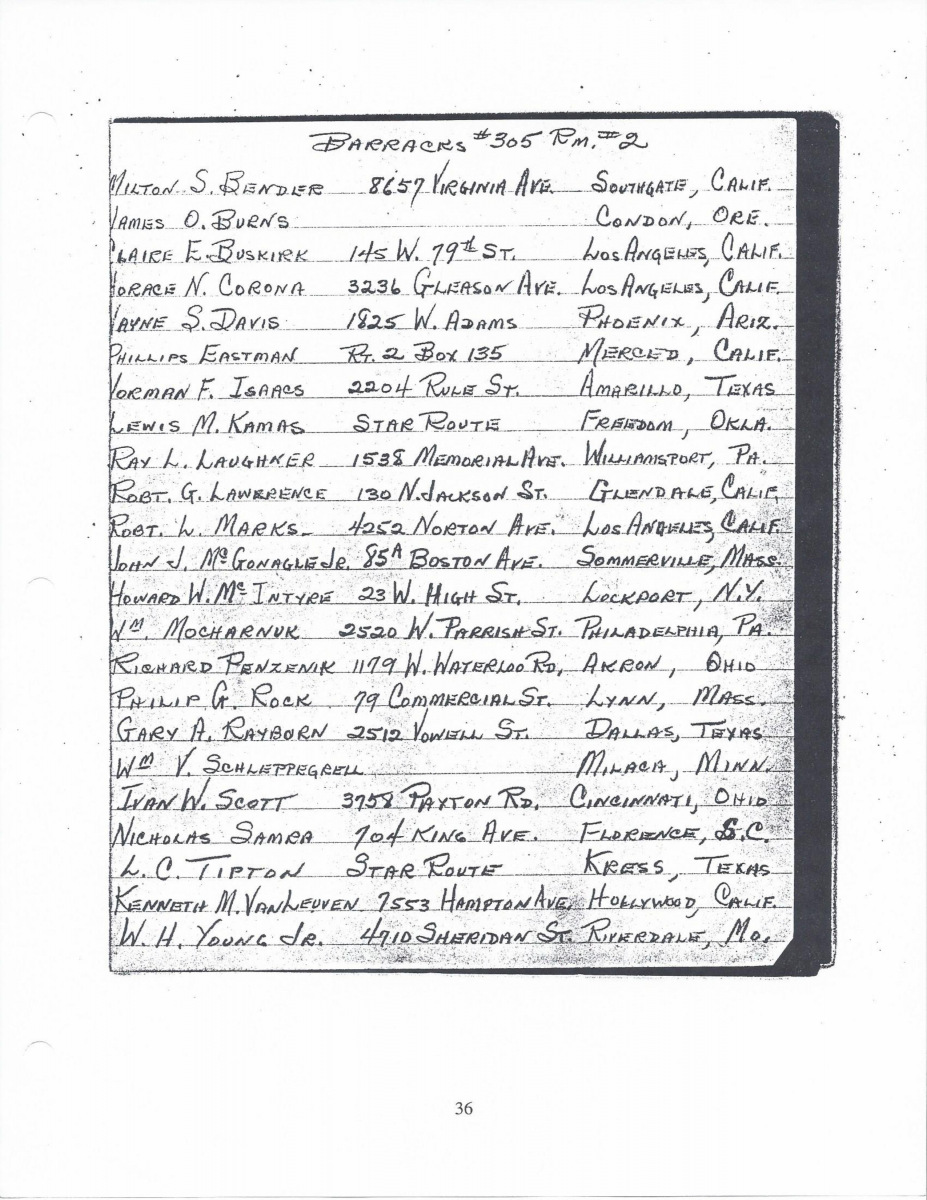 BARRACKS #305 RM. #2
MILTON S. BENDER 8657 VIRGINIA AVE. SOUTHGATE, CALIF.
JAMES O. BURNS CONDON, ORE.
CLAIRE E. BUSKIRK 145 W. 79th ST. LOS ANGELES, CALIF.
HORACE N. CORONA 3236 GLEASON AVE. LOS ANGELES, CALIF.
WAYNE S. DAVIS 1825 W. ADAMS PHOENIX, ARIZ.
PHILLIPS EASTMAN RT. 2 BOX 135 MERCED, CALIF.
NORMAN F. ISAACS 2204 RULE ST. AMARILLO, TEXAS
LEWIS M. KAMAS STAR ROUTE FREEDOM, OKLA.
RAY L. LAUGHNER 1538 MEMORIAL AVE. WILLIAMSPORT, PA.
ROBT. G. LAWRENCE 130 N. JACKSON ST. GLENDALE, CALIF.
ROBT. L. MARKS 4252 NORTON AVE. LOS ANGELES, CALIF.
JOHN J. McGONAGLE JR. 85A BOSTON AVE. SOMMERVILLE, MASS.
HOWARD W. McINTYRE 23 W. HIGH ST. LOCKPORT, N.Y.
WM. MOCHARNUK 2520 W. PARRISH ST. PHILADELPHIA, PA.
RICHARD PENZENIK 1179 W. WATERLOO RD, AKRON, OHIO
PHILIP G. ROCK 79 COMMERCIAL ST. LYNN, MASS.
GARY A. RAYBORN 2512 VOWELL ST. DALLAS, TEXAS
WM V. SCHLEPPEGRELL MILACA, MINN.
IVAN W. SCOTT 3758 PAXTON RD. CINCINNATI, OHIO
NICHOLAS SAMRA 704 KING AVE. FLORENCE, S.C.
L. C. TIPTON STAR ROUTE KRESS, TEXAS
KENNETH M. VANLEUVEN 7553 HAMPTON AVE, HOLLYWOOD, CALIF.
W. H. YOUNG JR. 4710 SHERIDAN ST. RIVERDALE, MO.
36